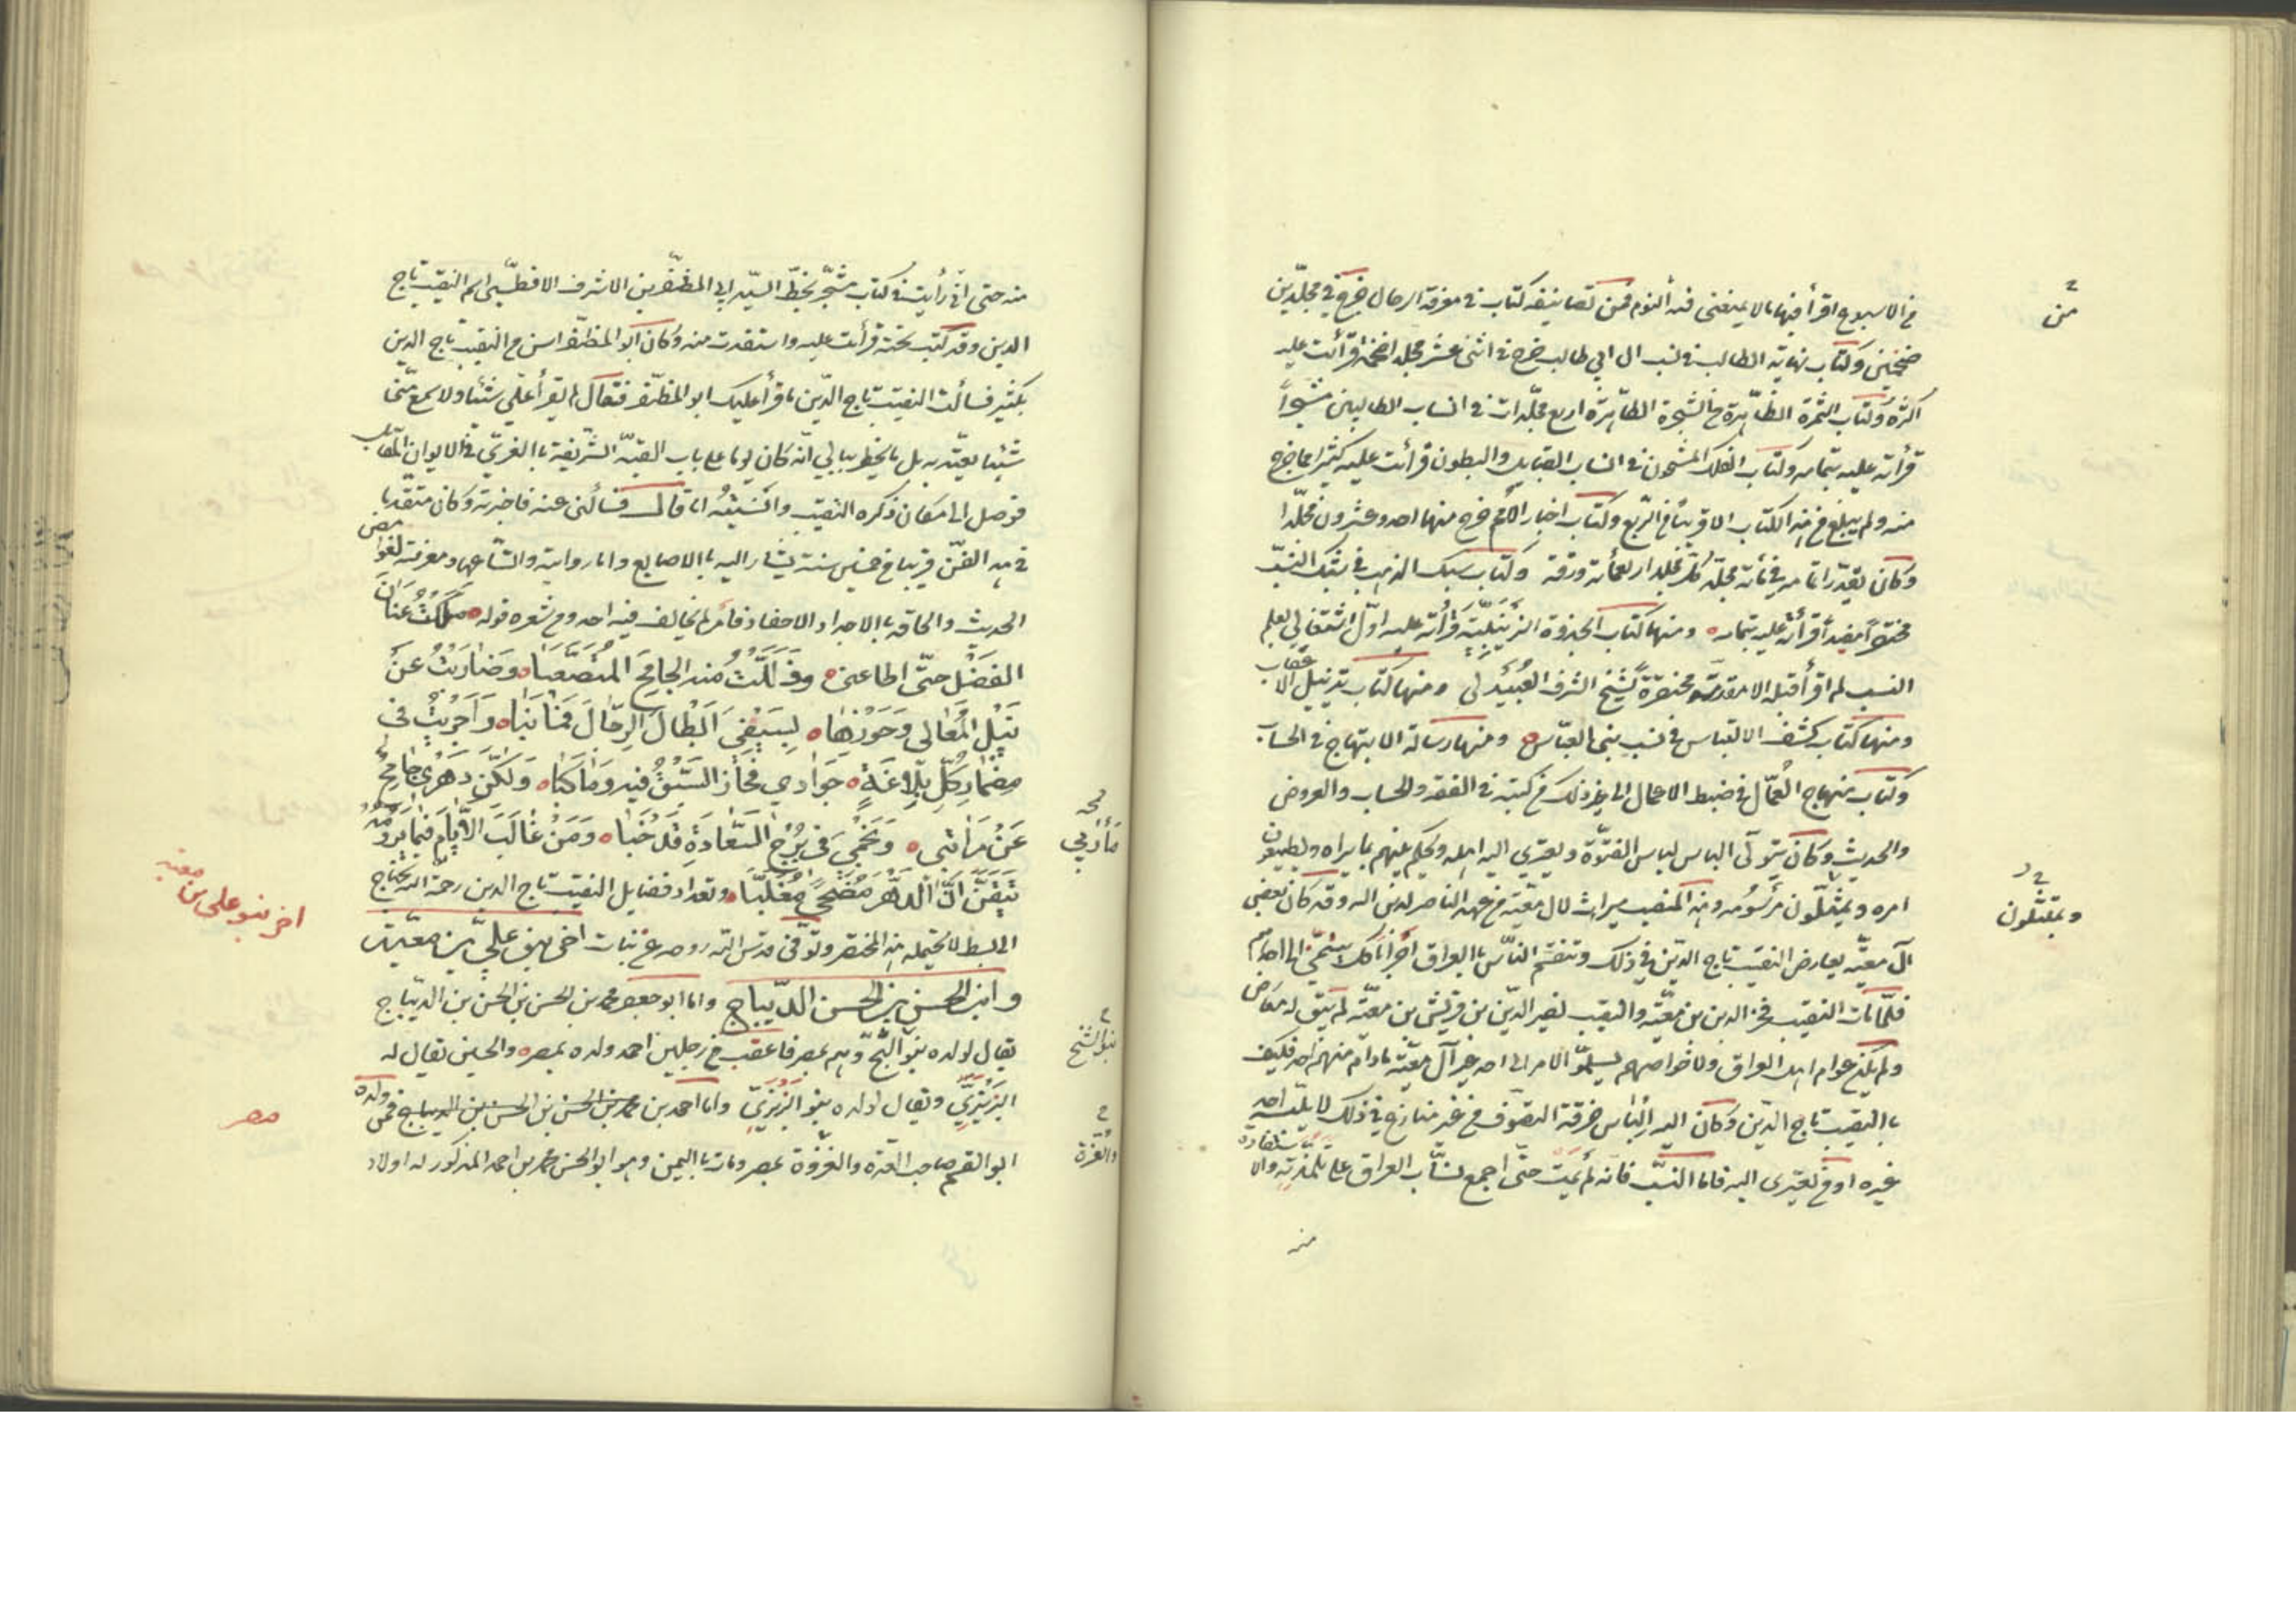 في الاسبوع اقرأ فيها بالا يمنعني فيه النوم فمن تصانيفه كتاب في معرفة الرجال خرج في مجلدين
من
ضخمين وكتاب نهاية الطالب في نسب ال ابي طالب خرج في اثنى عشر مجلدا ضخما قرأت عليه
اكثره وكتاب الثمرة الظاهرة من الشجرة الطاهرة اربع مجلدات في انساب الطالبيين مشجرا
قرأته عليه بتمامه وكتاب الفلك المشحون في انساب القبايل والبطون قرأت عليه كثيرا مما خرج
منه ولم يبلغ من هذا الكتاب الا قريبا من الربع وكتاب اخبار الامم خرج منها احد وعشرون مجلدا
وكان يقدر اتمامه في مائة مجلد كل مجلد اربعمائة ورقة وكتاب سبك الذهب في شبك النسب
مختصرا مفيدا قرأته عليه بتمامه ومنها كتاب الجذوة الزينبية قرأته عليه اول اشتغالي بعلم
النسب لم اقرأ قبله الا مقدمة مختصرة لشيخ الشرف العبيدلي ومنها كتاب تذييل الاعقاب
ومنها كتاب كشف الالتباس في نسب بني العباس ومنها رسالة الابتهاج في الحساب
وكتاب منهاج العمال في ضبط الاعمال الى غير ذلك من كتبه في الفقه والحساب والعروض
والحديث وكان يتولى الباس لباس الفتوة ويعتزي اليه اهله ويحكم بينهم بما يراه ويطيعون
امره ويمتثلون مرسومه وهذا المنصب ميراث لال معية من عهد الناصر لدين الله وقد كان بعض
ويمتثلون
آل معية يعارض النقيب تاج الدين في ذلك وتنقسم الناس بالعراق احزابا كل ينتمي الى احدهم
فلما مات النقيب فخر الدين بن معية والنقيب نصير الدين بن قريش بن معية لم يبق له معارض
ولم يكن عوام اهل العراق ولا خواصهم يسلموا الامر الى احد غير آل معية مادام منهم احد فكيف
بالنقيب تاج الدين وكان اليه الباس خرقة التصوف من غير منازع في ذلك لا يلبسه احد
غيره او من يعتزى اليه فاما النسب فانه لم يمت حتى اجمع نساب العراق على تلمذته والاستفادة
منه
منه حتى اني رأيت في كتاب مشجر بخط السيد ابي المظفر بن الاشرف الافطسي اسم النقيب تاج
الدين وقد كتب تحته قرأت عليه واستفدت منه وكان ابو المظفر اسن من النقيب تاج الدين
بكثير فسألت النقيب تاج الدين ما قرأ عليك ابو المظفر فقال لم يقرأ على شيئا ولا سمع مني
شيئا يعتد به بل ما يخطر ببالي انه كان يوما على باب القبة الشريفة بالغري في الايوان المقابل
فوصل الى مكان ذكره النقيب وانسيته انا قال فسألني عنه فاخبرته وكان متقدما
في هذا الفن قريبا من خمسين سنة يشار اليه بالاصابع واما روايته واتساعها ومعرفته لغوامض
الحديث والحاقه بالاجداد الاحفاد فامر لم يخالف فيه احد ومن شعره قوله ملكت عنان
الفضل حتى اطاعني وذللت منه الجامح المتصعبا وضاربت عن
نيل المعالي وحوزها بسيفي ابطال الرجال فما نبا واجريت في
مضمار كل بلاغة جوادي فحاز السبق فيه وما كبا ولكن دهري جامح
عن مراتبي ونجمي في برج السعادة قد خبا ومن غالب الايام فيما يرومه
تيقن ان الدهر يضحي مغلبا وتعداد فضايل النقيب تاج الدين رحمه الله يحتاج
الى بسط لا يحتمله هذا المختصر وتوفى قدس الله روحه عن بنات اخر بنو علي بن معية
اخر بنو علي بن معية
وابن الحسن بن الحسن الديباج واما ابو جعفر محمد بن الحسن بن الحسن بن الديباج
يقال لولده بنو التج وهم بمصر فاعقب من رجلين احمد ولده بمصر والحسين يقال له
البربري ويقال لولده بنو البربري واما احمد بن محمد بن الحسن بن الحسن بن الديباج فمن ولده
مصر
ابو القسم صاحب العدة والغزوة بمصر ومات باليمن وهو ابو الحسن محمد بن احمد المذكور له اولاد